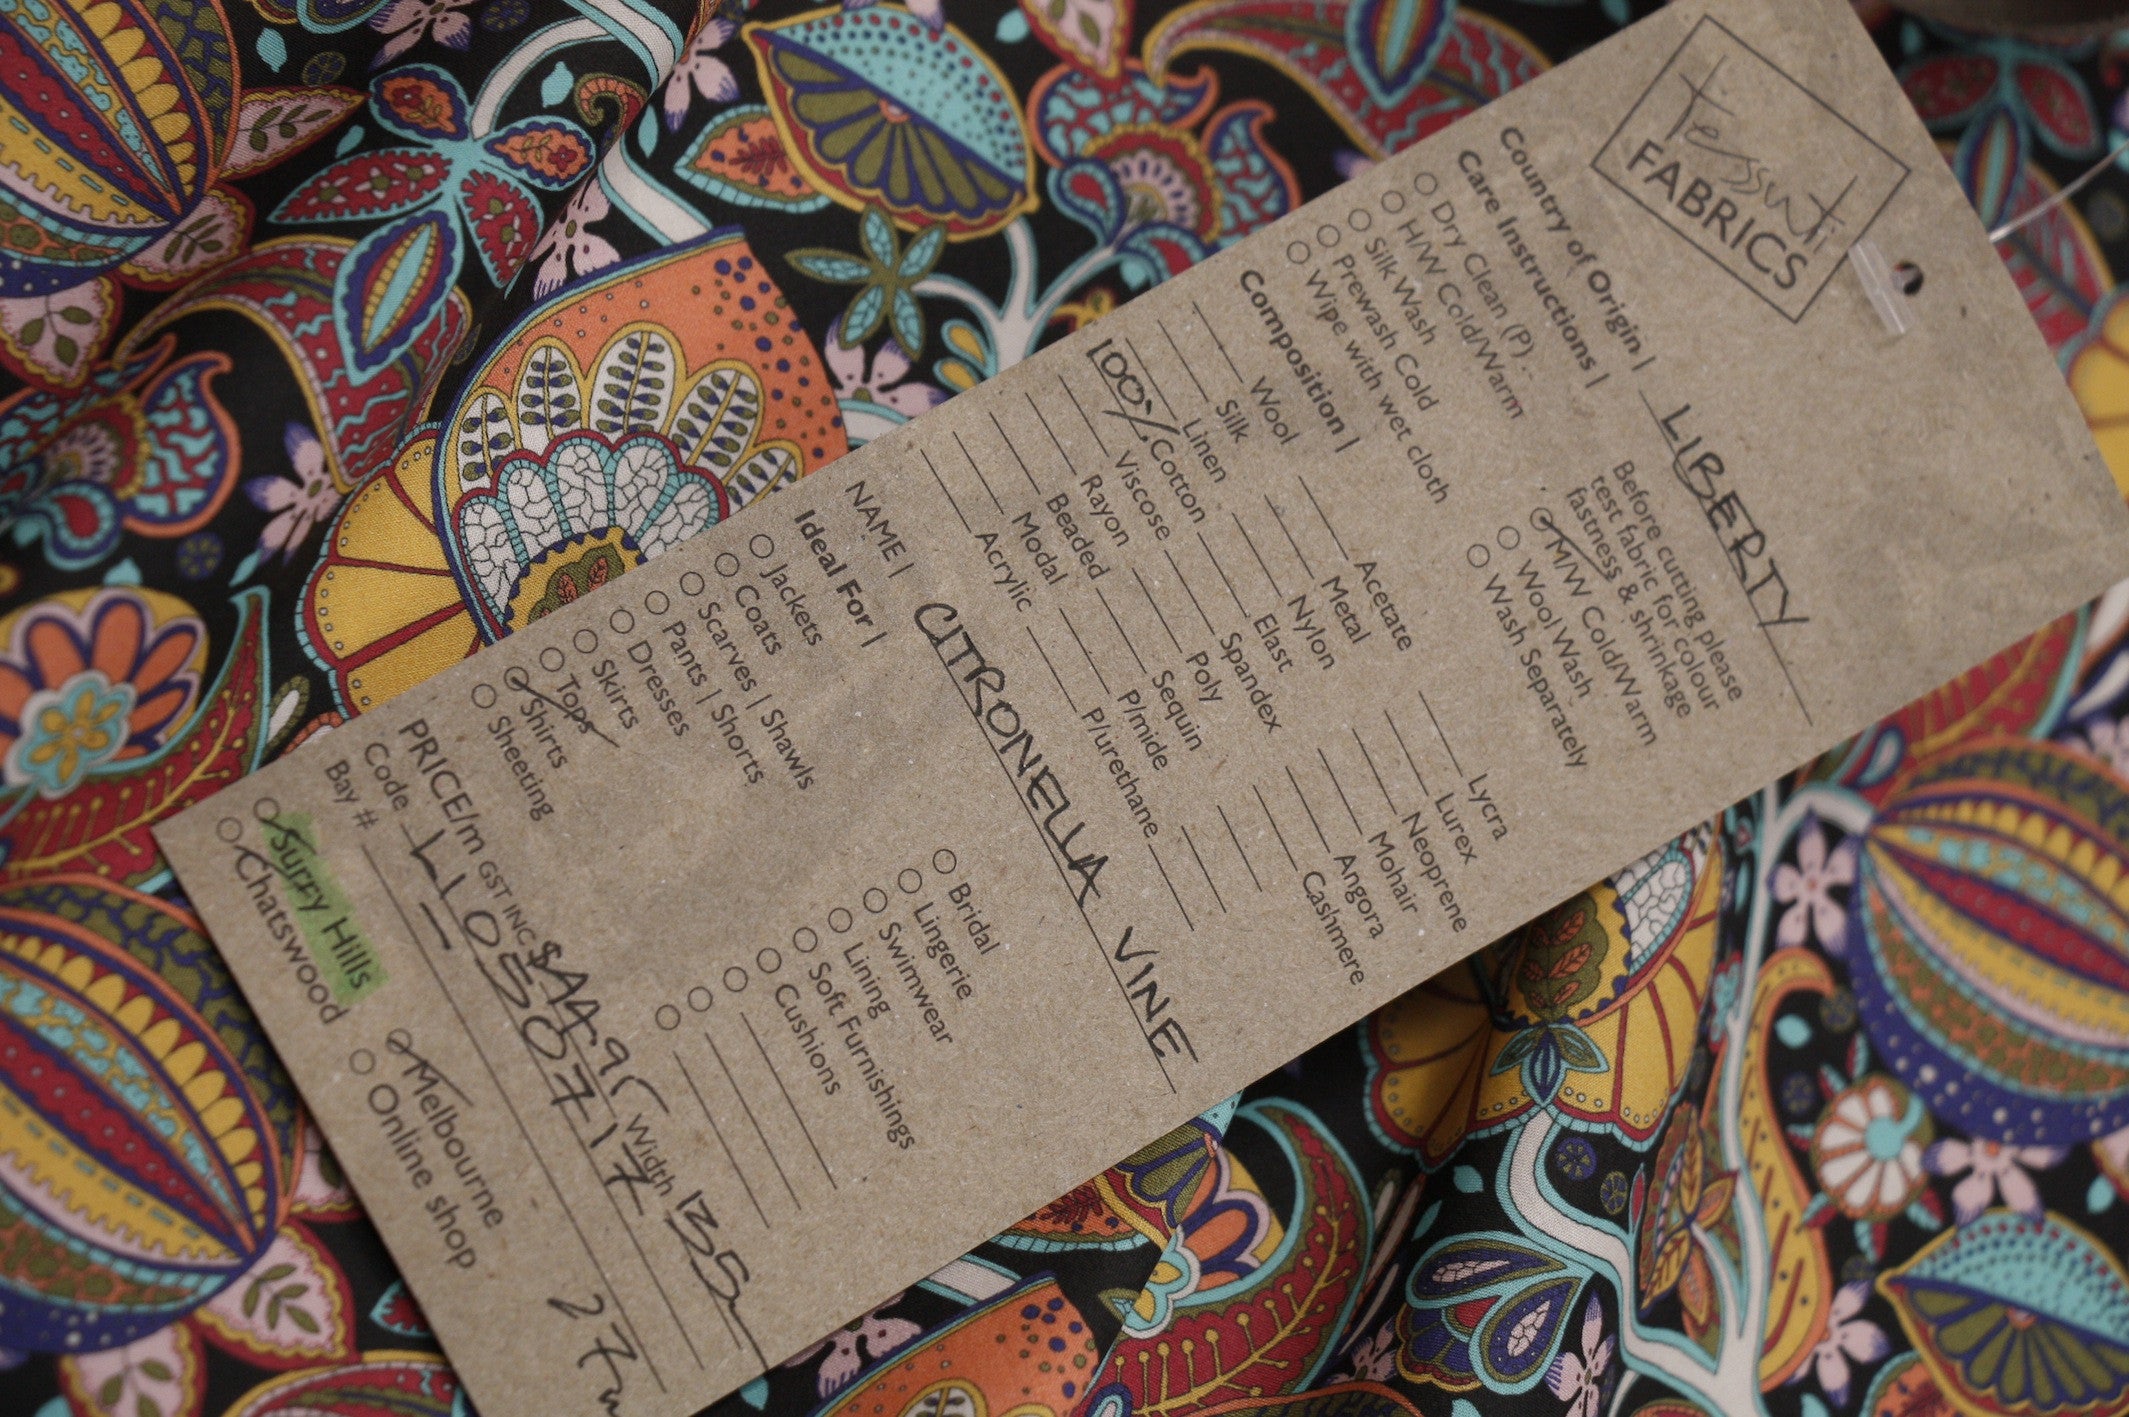 Tessuti
FABRICS
Country of Origin | LIBERTY
Care Instructions |
Dry Clean (P)
H/W Cold/Warm
Silk Wash
Prewash Cold
Wipe with wet cloth
Before cutting please
test fabric for colour
fastness & shrinkage
M/W Cold/Warm
Wool Wash
Wash Separately
Composition |
Wool
Silk
Linen
100% Cotton
Viscose
Rayon
Beaded
Modal
Acrylic
Acetate
Metal
Nylon
Elast
Spandex
Poly
Sequin
P/mide
P/urethane
Lycra
Lurex
Neoprene
Mohair
Angora
Cashmere
NAME | CITRONELLA VINE
Ideal For |
Jackets
Coats
Scarves | Shawls
Pants | Shorts
Dresses
Skirts
Tops
Shirts
Sheeting
Bridal
Lingerie
Swimwear
Lining
Soft Furnishings
Cushions
PRICE/m GST INC $44.95 Width 135
Code LI 050717
Bay #
Surry Hills
Chatswood
Melbourne
Online shop
27m